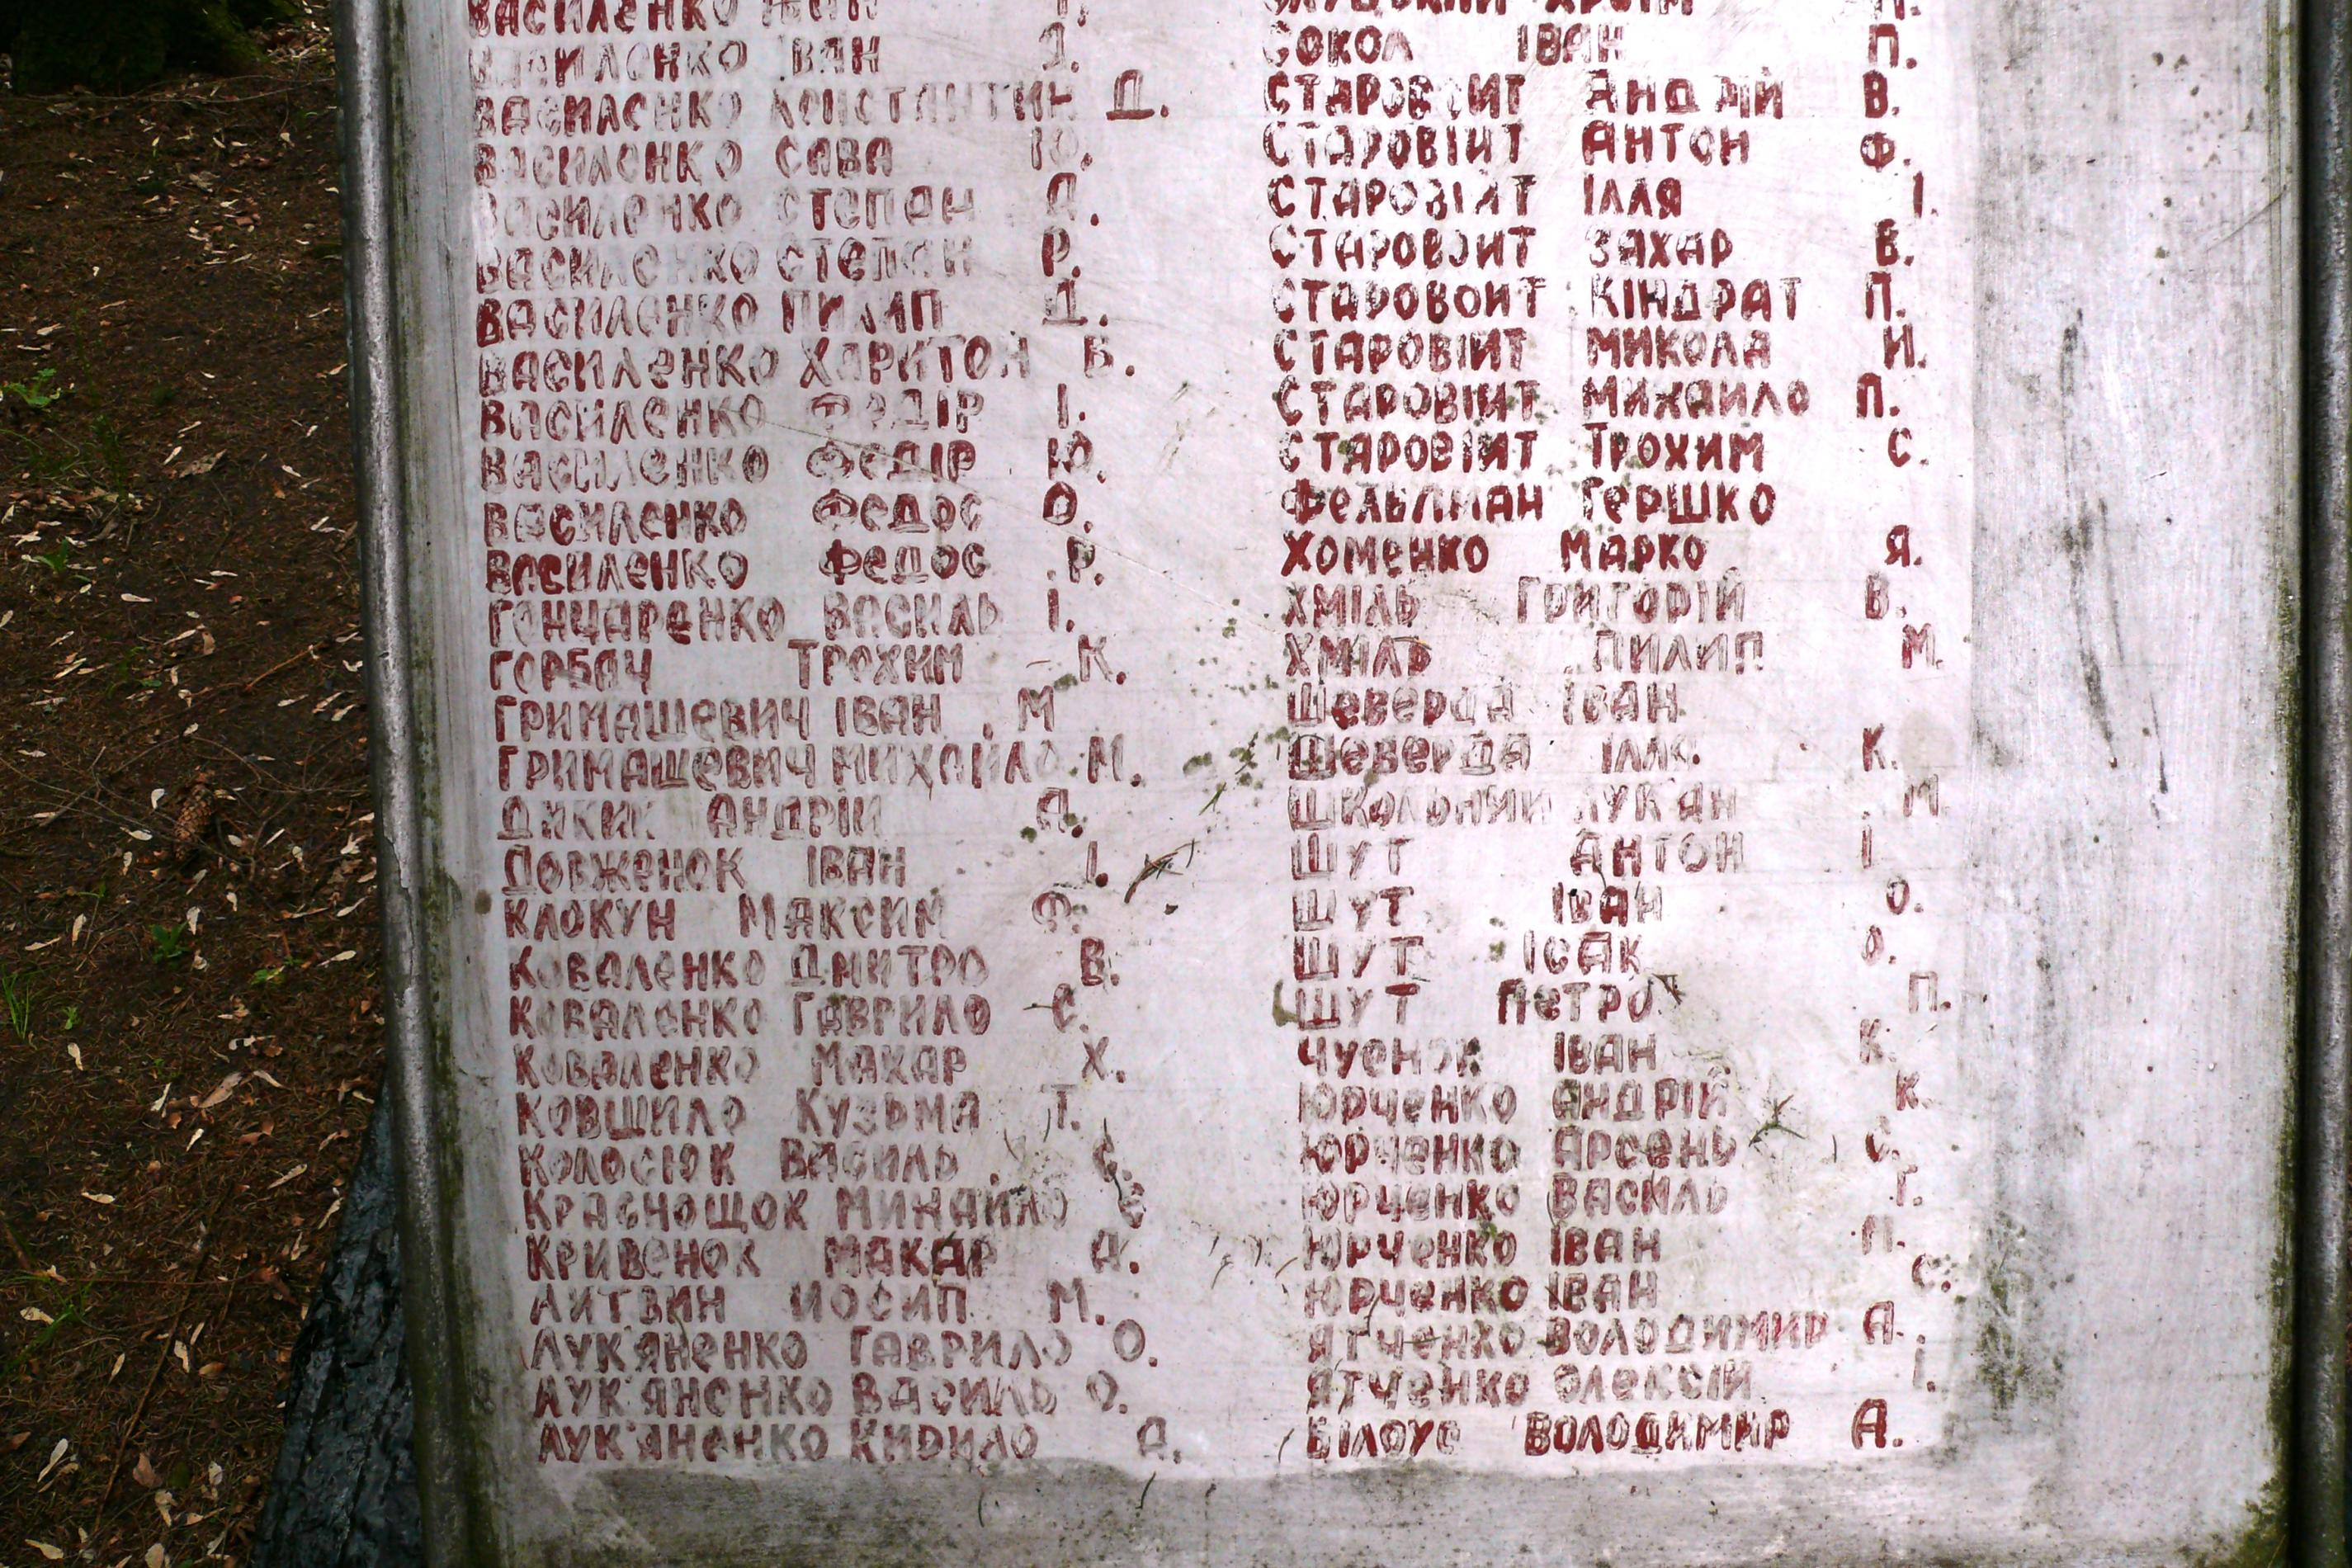 ВАСИЛЕНКО ІВАН
ВАСИЛЕНКО ІВАН
ВАСИЛЕНКО КОНСТАНТИН Д.
ВАСИЛЕНКО САВА Ю.
ВАСИЛЕНКО СТЕПАН
ВАСИЛЕНКО СТЕПАН Р.
ВАСИЛЕНКО ПИЛИП Д.
ВАСИЛЕНКО ХАРИТОН Б.
ВАСИЛЕНКО ФЕДІР І.
ВАСИЛЕНКО ФЕДІР Ю.
ВАСИЛЕНКО ФЕДОС О.
ВАСИЛЕНКО ФЕДОС Р.
ГОНЧАРЕНКО ВАСИЛЬ І.
ГОРБАЧ ТРОХИМ К.
ГРИМАШЕВИЧ ІВАН М
ГРИМАШЕВИЧ МИХАЙЛО М.
ДИКИЙ АНДРІЙ
ДОВЖЕНОК ІВАН І.
КЛОКУН МАКСИМ Ф.
КОВАЛЕНКО ДМИТРО В.
КОВАЛЕНКО ГАВРИЛО С.
КОВАЛЕНКО МАКАР Х.
КОВШИЛО КУЗЬМА Т.
КОЛОСЮК ВАСИЛЬ С.
КРАСНОЩОК МИХАЙЛО Є
КРИВЕНОК МАКАР А.
ЛИТВИН ЙОСИП М.
ЛУК'ЯНЕНКО ГАВРИЛО О.
ЛУК'ЯНЕНКО ВАСИЛЬ О.
ЛУК'ЯНЕНКО КИРИЛО А.
СОКОЛ ІВАН П.
СТАРОВОИТ АНДРІЙ В.
СТАРОВІЙТ АНТОН Ф.
СТАРОВІЙТ ІЛЛЯ І.
СТАРОВОИТ ЗАХАР В.
СТАРОВОИТ КІНДРАТ П.
СТАРОВІЙТ МИКОЛА И.
СТАРОВІЙТ МИХАЙЛО П.
СТАРОВІЙТ ТРОХИМ С.
ФЕЛЬДМАН ГЕРШКО
ХОМЕНКО МАРКО Я.
ХМІЛЬ ГРИГОРІЙ В.
ХМІЛЬ ПИЛИП М.
ШЕВЕРДА ІВАН
ШЕВЕРДА ІЛЛЯ К.
ШКОЛЬНИЙ ЛУК'ЯН М
ШУТ АНТОН І
ШУТ ІВАН О.
ШУТ ІСАК О.
ШУТ ПЕТРО П.
ЧУЕНОК ІВАН К.
ЮРЧЕНКО АНДРІЙ К.
ЮРЧЕНКО АРСЕНЬ С.
ЮРЧЕНКО ВАСИЛЬ Т.
ЮРЧЕНКО ІВАН П.
ЮРЧЕНКО ІВАН С.
ЯТЧЕНКО ВОЛОДИМИР А.
ЯТЧЕНКО ОЛЕКСІЙ І.
БІЛОУС ВОЛОДИМИР А.